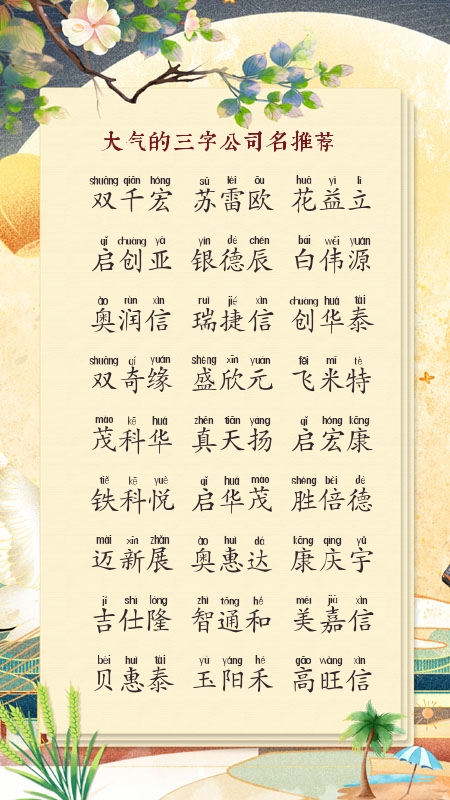 大气的三字公司名推荐
shuāng qiān hóng sū léi ōu huā yì lì
双千宏 苏雷欧 花益立
qǐ chuàng yà yín dé chén bái wěi yuán
启创亚 银德辰 白伟源
ào rùn xìn ruì jié xìn chuàng huá tài
奥润信 瑞捷信 创华泰
shuāng qí yuán shèng xīn yuán fēi mǐ tè
双奇缘 盛欣元 飞米特
mào kē huá zhēn tiān yáng qǐ hóng kāng
茂科华 真天扬 启宏康
tiě kē yuè qǐ huá mào shèng bèi dé
铁科悦 启华茂 胜倍德
mài xīn zhǎn ào huì dá kāng qìng yǔ
迈新展 奥惠达 康庆宇
jí shì lóng zhì tōng hé měi jiā xìn
吉仕隆 智通和 美嘉信
bèi huì tài yù yáng hé gāo wàng xìn
贝惠泰 玉阳禾 高旺信